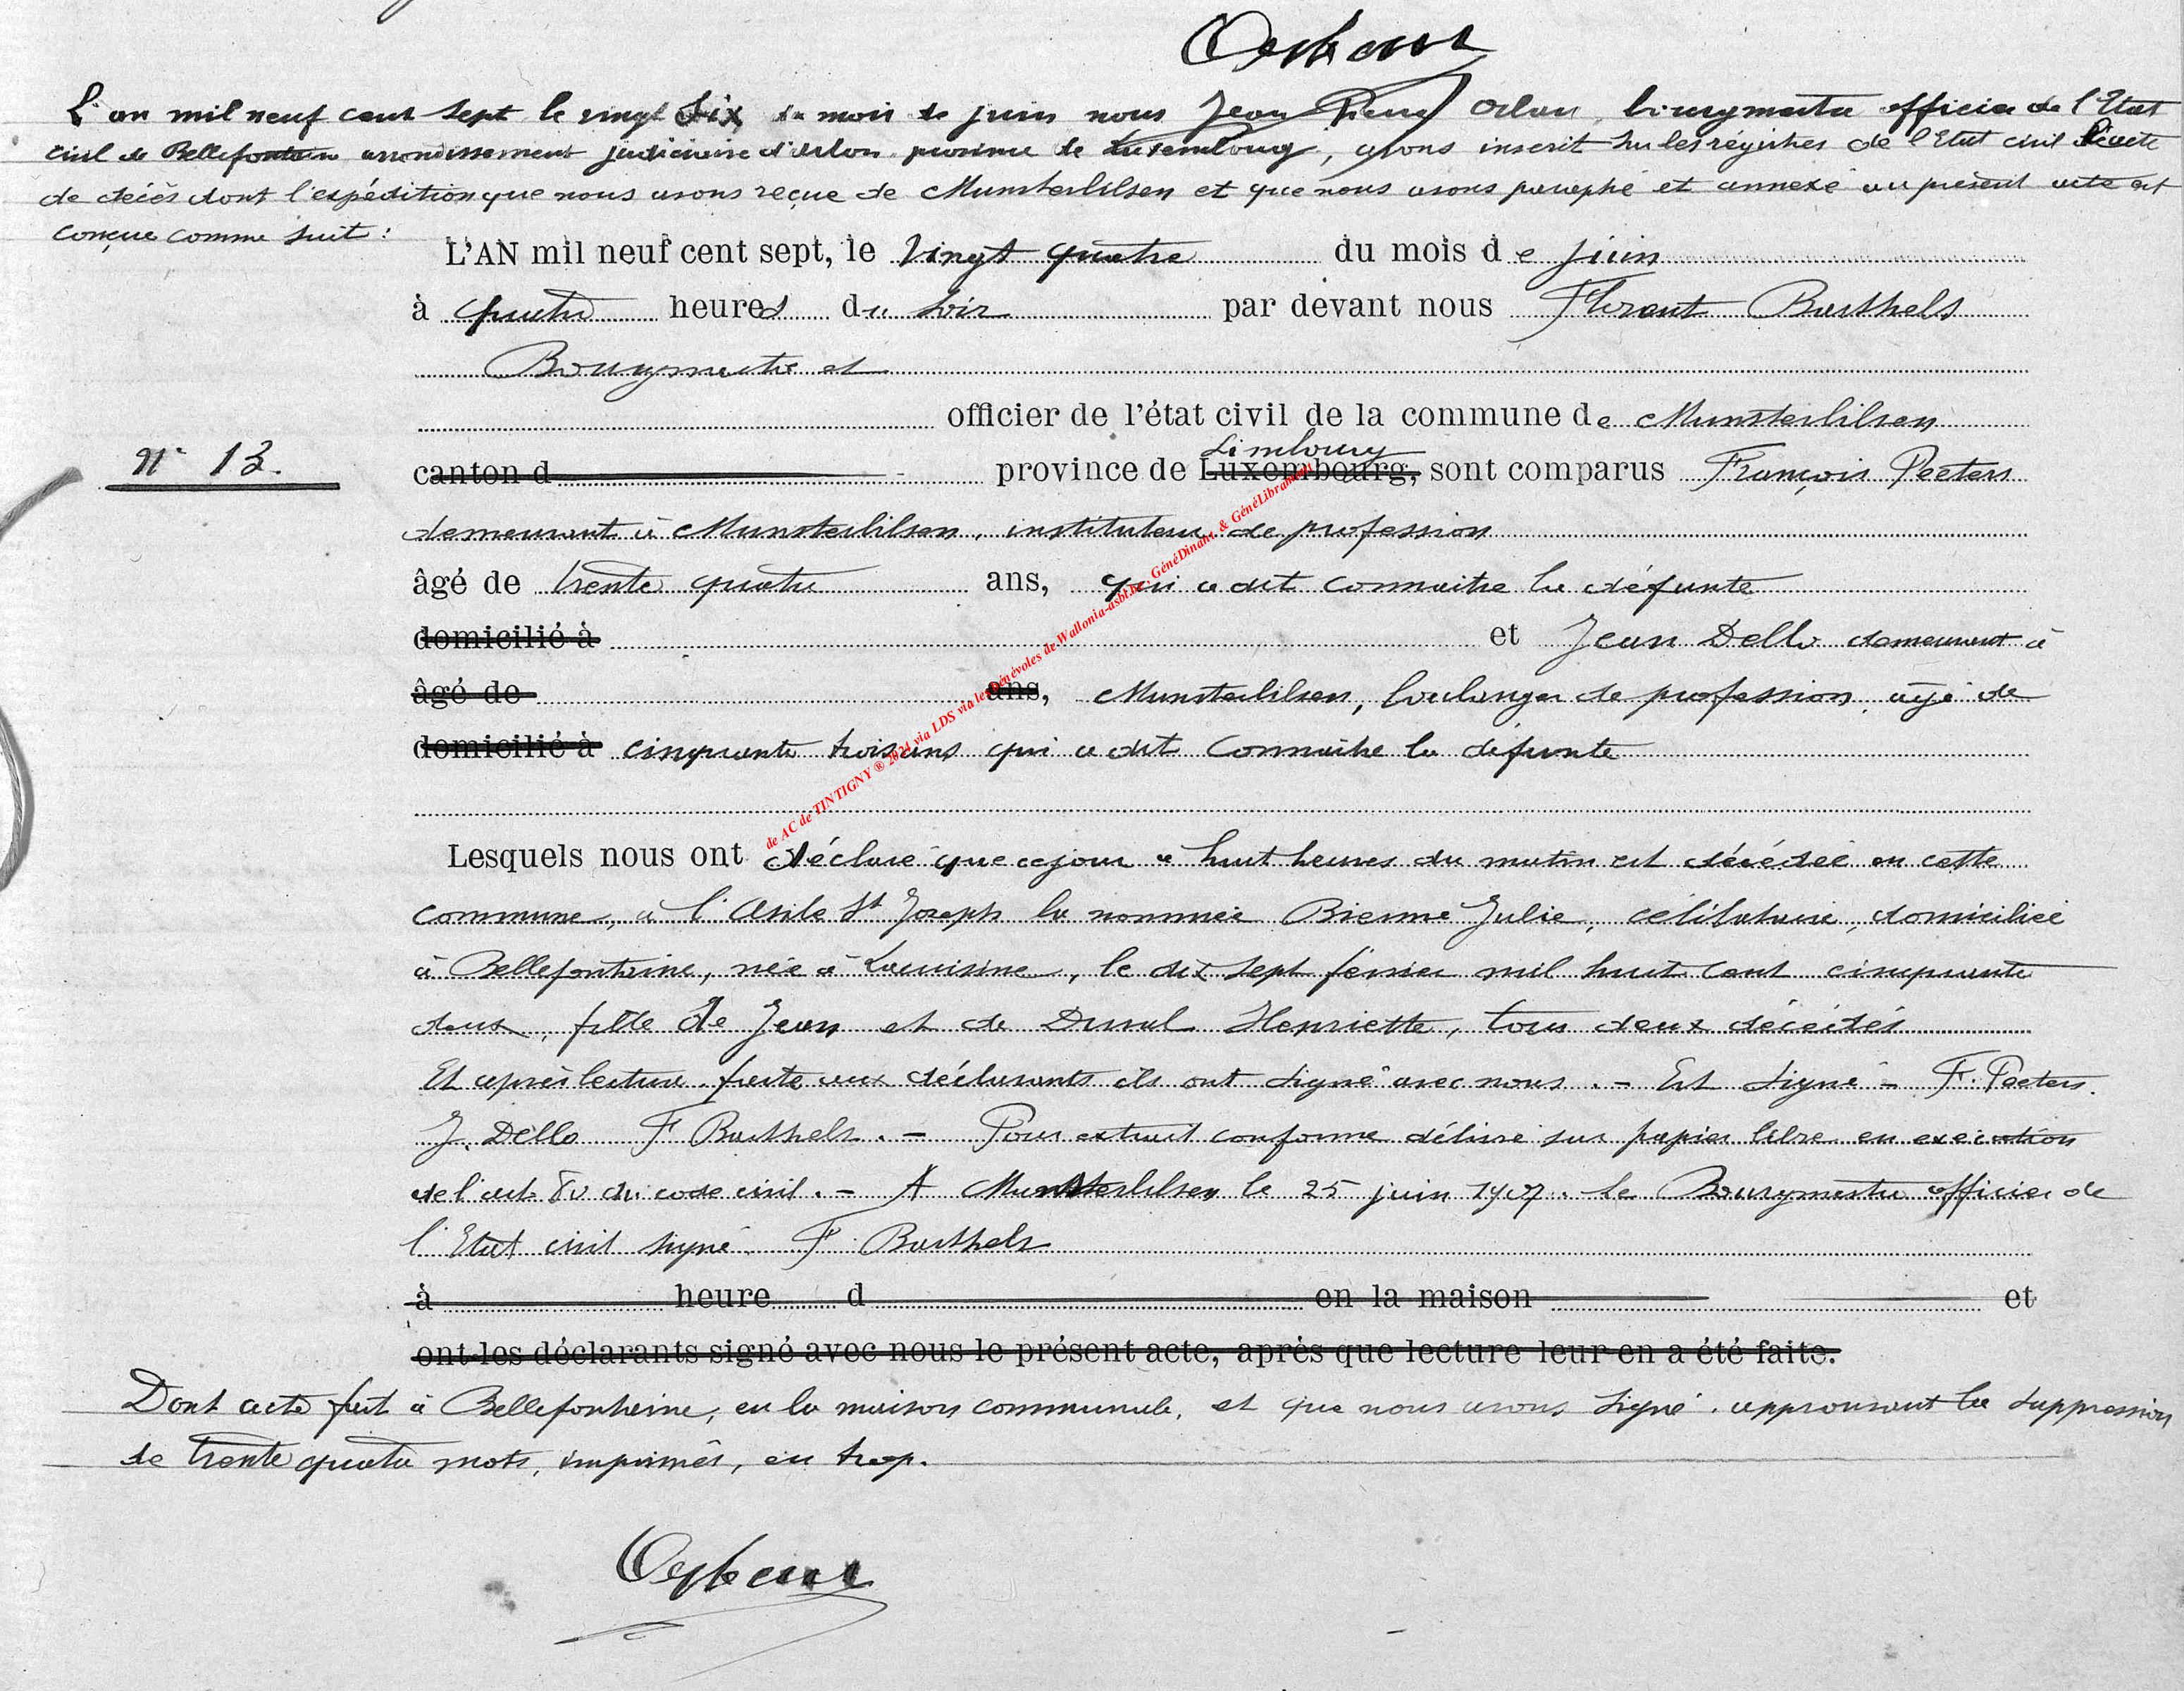 L'an mil neuf cent sept le vingt six du mois de juin nous Jean Pierre bourgmestre officier de l'Etat
civil de Bellefontaine arrondissement judiciaire d'Arlon province de Luxembourg, avons inscrit sur les régistres de l'Etat civil l'acte
de décès dont l'expédition que nous avons reçue de Munsterbilsen et que nous avons paraphé et annexé au présent acte est
conçue comme suit :
L'AN mil neuf cent sept, le vingt quatre du mois de juin
à quatre heures du soir par devant nous Florent Barthels
Bourgmestre et
officier de l'état civil de la commune de Munsterbilsen
Limbourg
N° 13. canton d province de Luxembourg, sont comparus François Peeters
demeurant à Munsterbilsen, instituteur de profession
âgé de trente quatre ans, qui a dit connaitre la défunte
domicilié à et Jean Dello demeurant à
âgé de ans, Munsterbilsen, boulanger de profession, âgé de
domicilié à cinquante trois ans qui a dit connaitre la défunte
Lesquels nous ont déclaré que ce jour à huit heures du matin est décédée en cette
commune, à l'Asile St Joseph la nommée Bienne Julie, célibataire, domiciliée
à Bellefontaine, née à Lacuisine, le dix sept février mil huit cent cinquante
deux, fille de Jean et de Duval Henriette, tous deux décédés
Et après lecture faite aux déclarants ils ont signé avec nous. - Est signé - F. Peeters.
J. Dello F Barthels. - Pour extrait conforme délivré sur papier libre en execution
de l'art. 80 du code civil. - A Munsterbilsen le 25 juin 1907. Le Bourgmestre officier de
l'Etat civil signé F Barthels
à heure d en la maison et
ont les déclarants signé avec nous le présent acte, après que lecture leur en a été faite.
Dont acte fait à Bellefontaine, en la maison communale, et que nous avons signé. approuvant la suppression
de trente quatre mots, imprimés, en trop.
de AC de TINTIGNY ® 2024 via LDS via les Bénévoles de Wallonia-asbl.be, GénéDinant & GénéLibramont